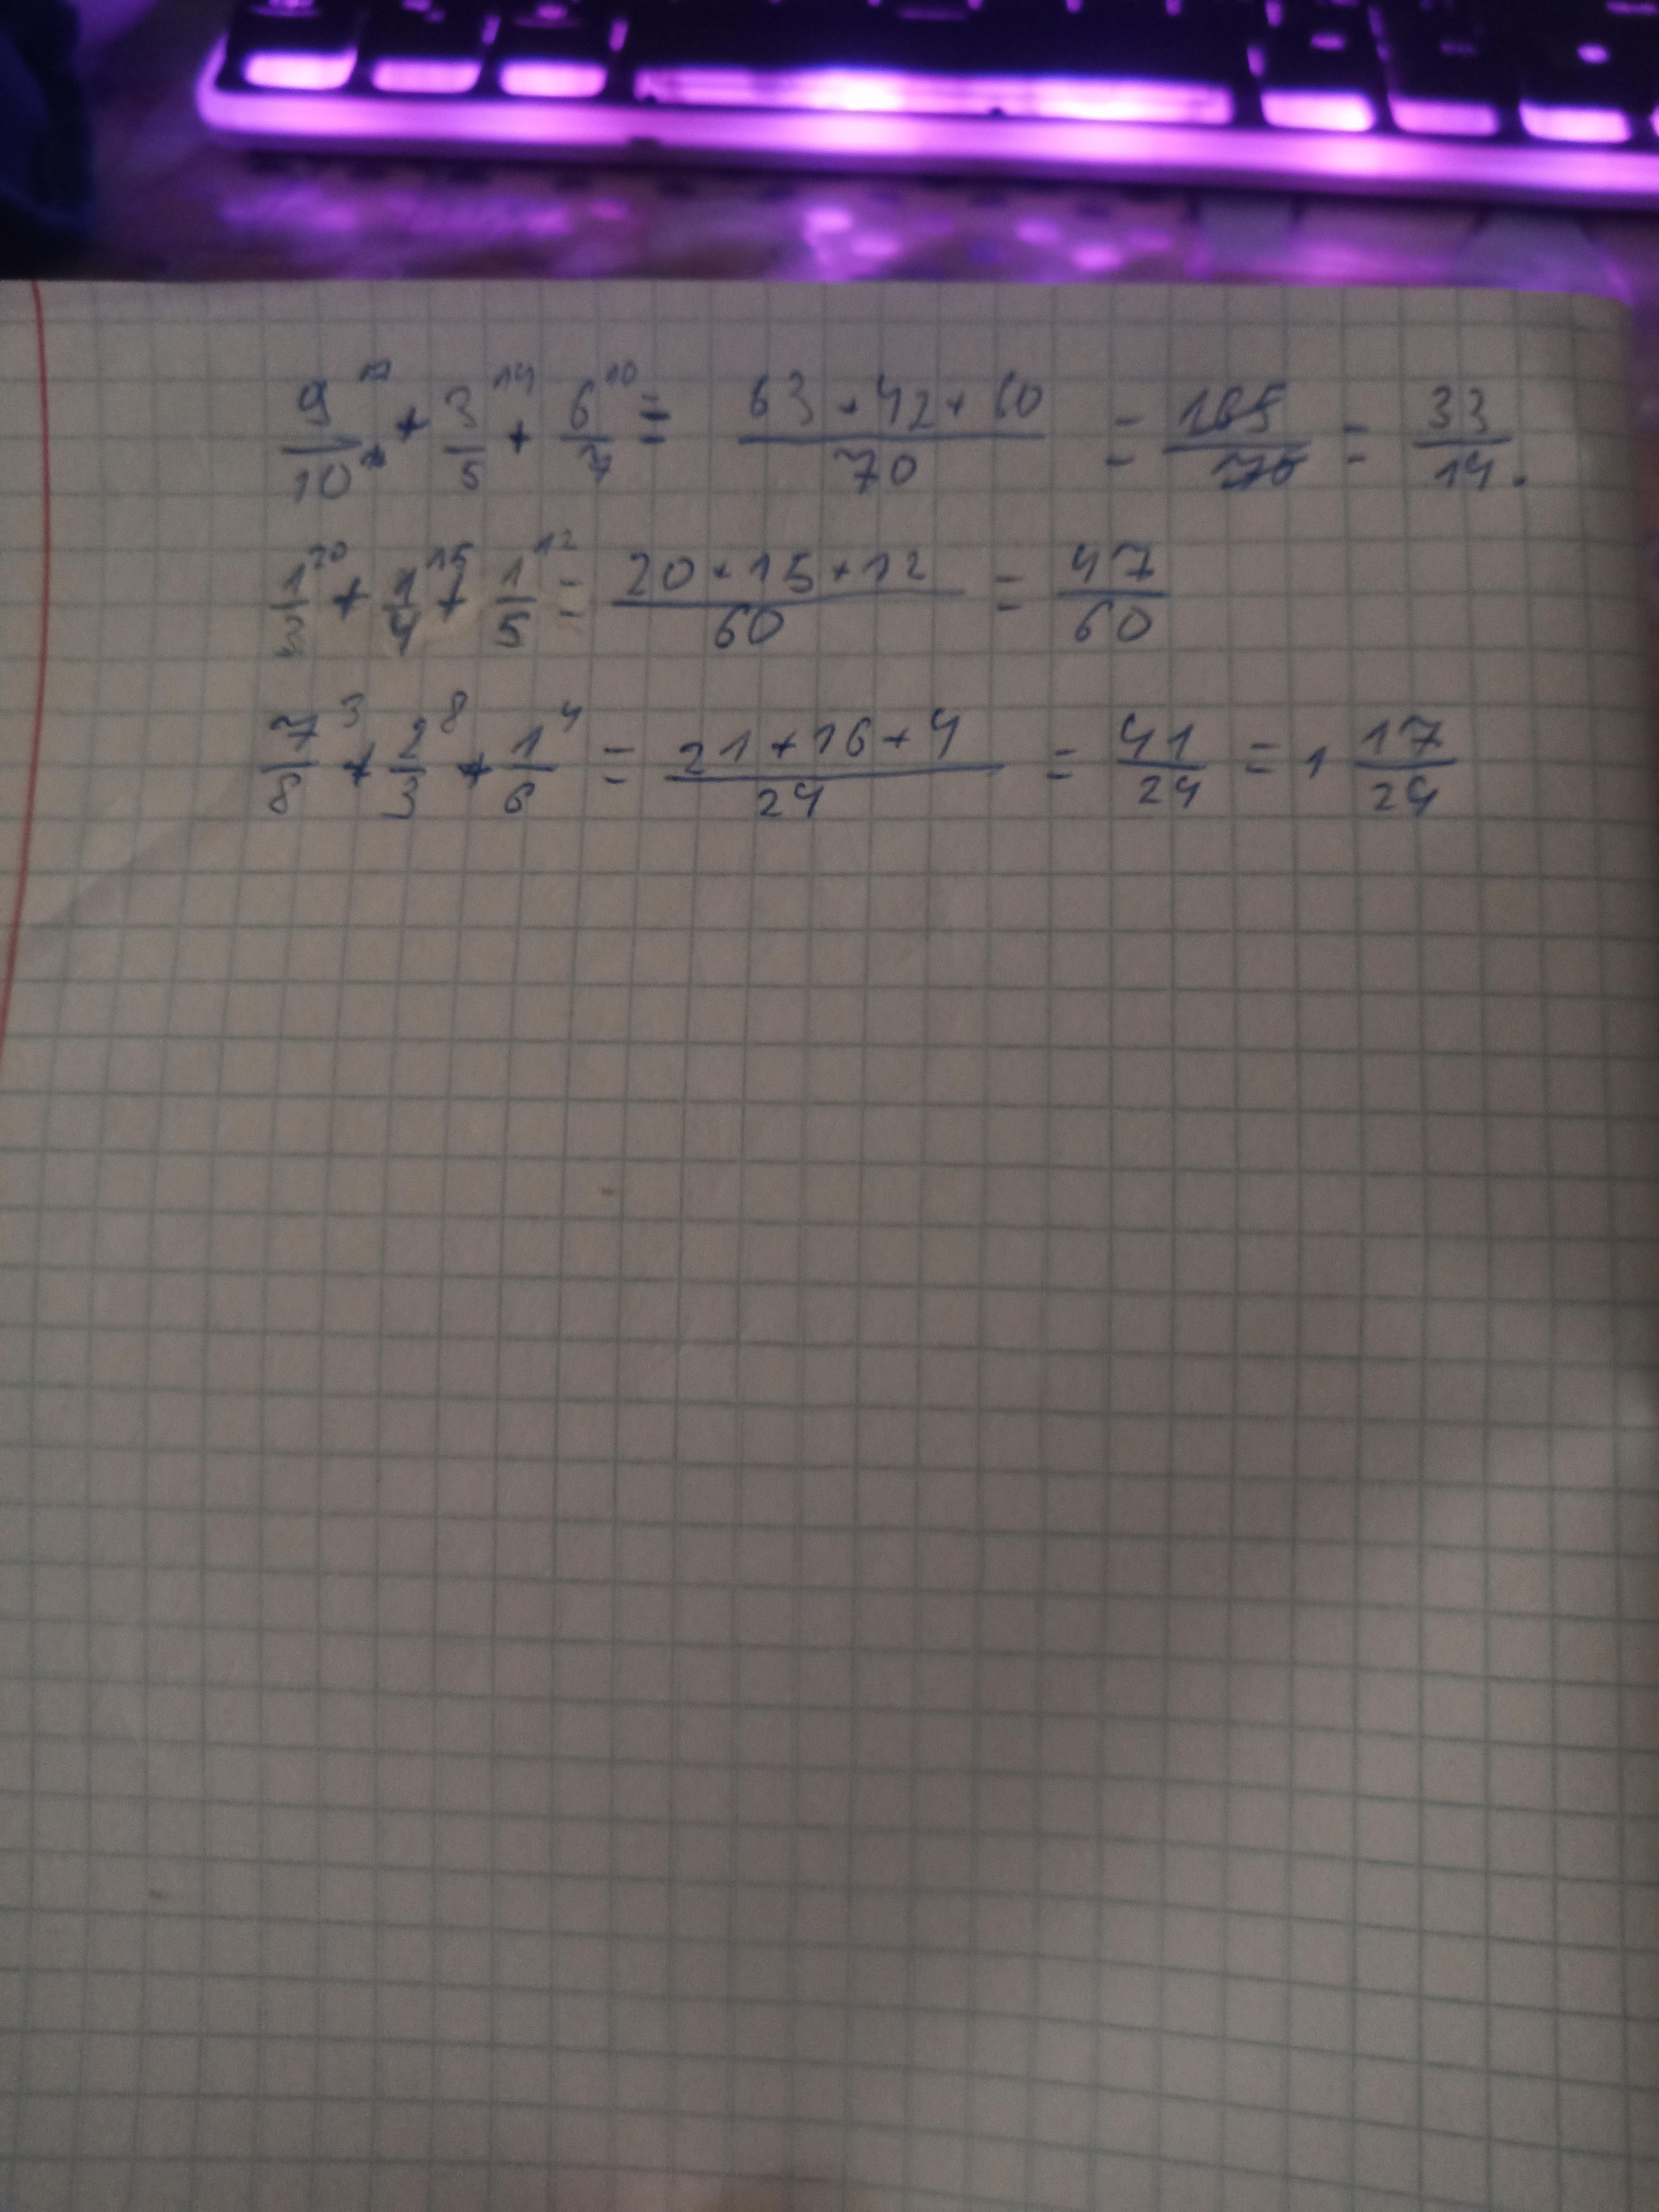 9/10 ⁷ + 3/5 ¹⁴ + 6/7 ¹⁰ = (63 + 42 + 60)/70 = 165/70 = 33/14.
1/3 ²⁰ + 1/4 ¹⁵ + 1/5 ¹² = (20 + 15 + 12)/60 = 47/60
7/8 ³ + 2/3 ⁸ + 1/6 ⁴ = (21 + 16 + 4)/24 = 41/24 = 1 17/24